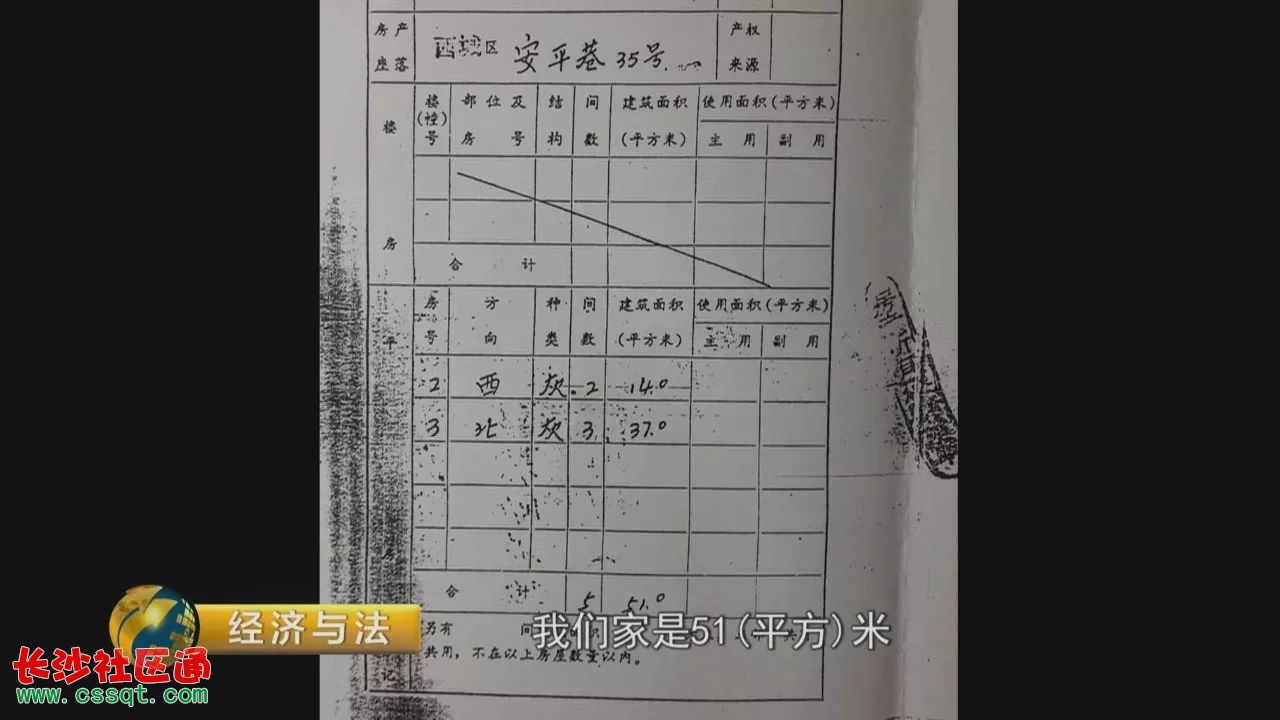 房产 西城区 安平巷 35号 产权
座落 来源
楼 部位及 结 间 建筑面积 使用面积(平方米)
(幢)
号 房号 构 数 (平方米) 主用 副用
楼
房
合计
房 方 种 间 建筑面积 使用面积(平方米)
号 向 类 数 (平方米) 主用 副用
平
2 西 灰 2 14.0
3 北 灰 3 37.0
房
合计 5 51.0
另有 间
共用,不在以上房屋数量以内。
记
经济与法
我们家是51(平方)米
长沙社区通
www.cssqt.com